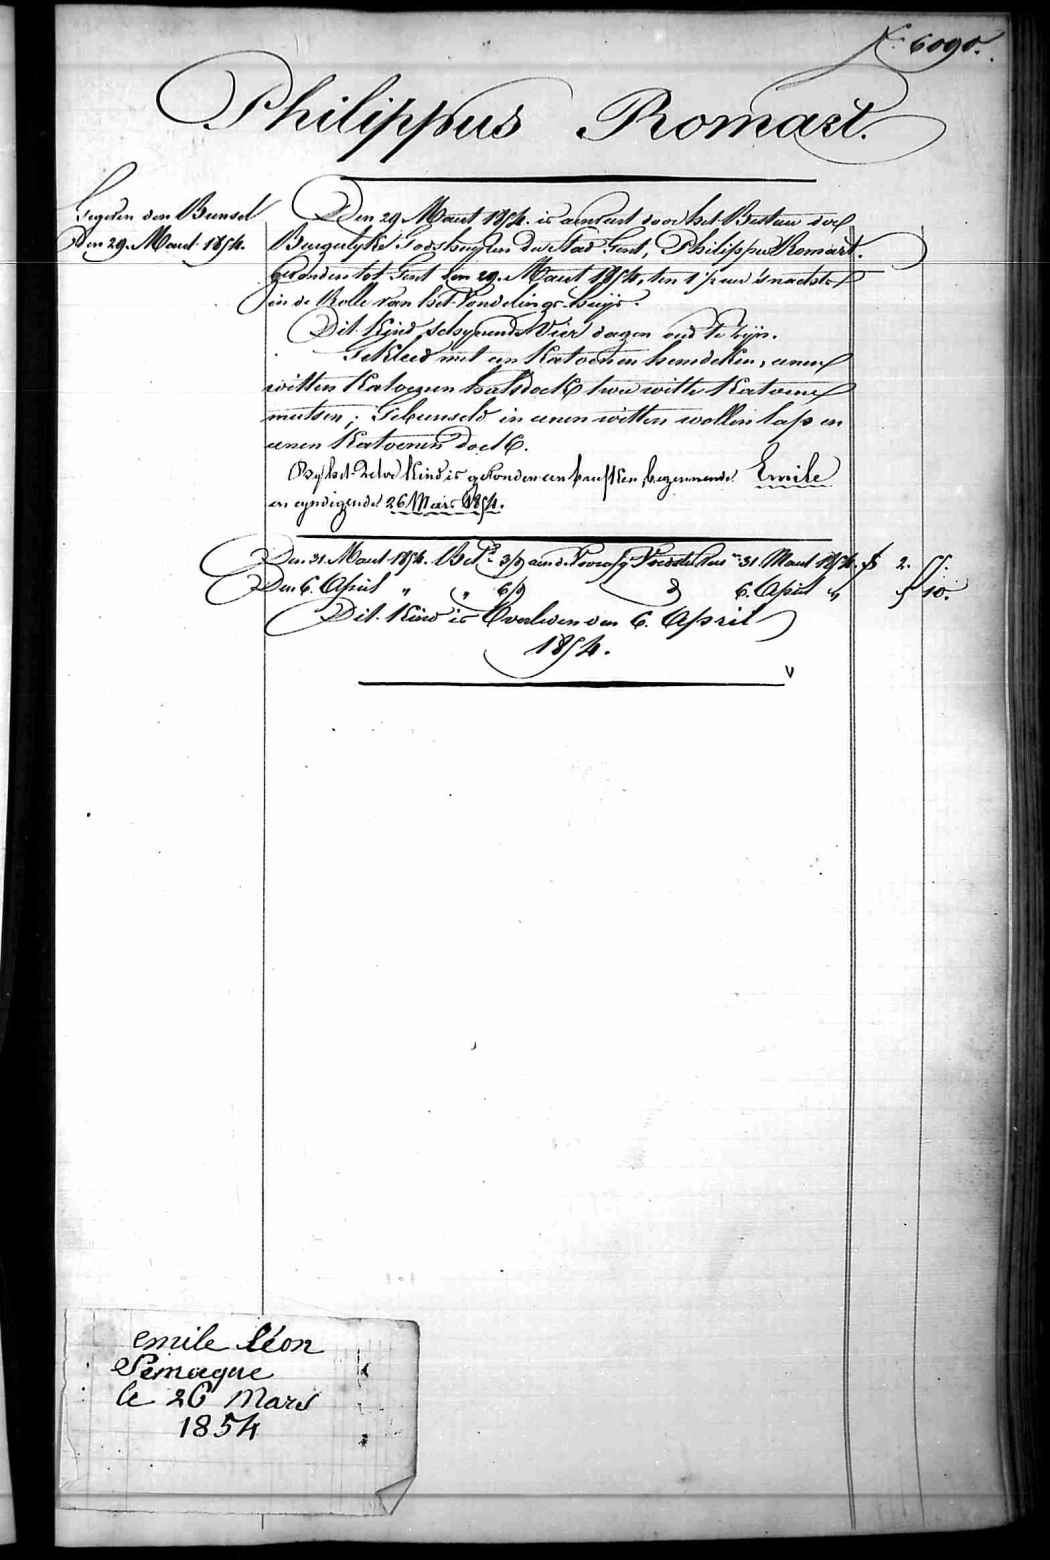 N.º 6090.
Philippus Romart.
Gegeven den Bunsel
den 29. Maart 1854.
Den 29 Maart 1854. is aenveert door het Bestuer der
Burgerlyke Godshuyzen der Stad Gent, Philippus Romart.
gevonden tot Gent den 29. Maart 1854, ten 1 ½ ure 's nachts
in de Rolle van het Vondelings-huys.
Dit Kind schynende Vier dagen oud te zyn.
Gekleed met een Katoenen hemdeken, eenen
witten Katoenen halsdoek, twee witte Katoene
mutsen; Gebunseld in eenen witten wollen lap en
eenen Katoenen doek.
By het zelve Kind is gevonden een briefken, beginnende Emile
en eyndigende 26 Mars 1854.
Den 31. Maart 1854. Bet. 3/9 aen de 31 Maart 1854. f 2. 55.
Den 6. April " " 6/9 6. April " f 10.
Dit Kind is Overleden den 6. April
1854.
emile léon
Semaque
le 26 Mars
1854